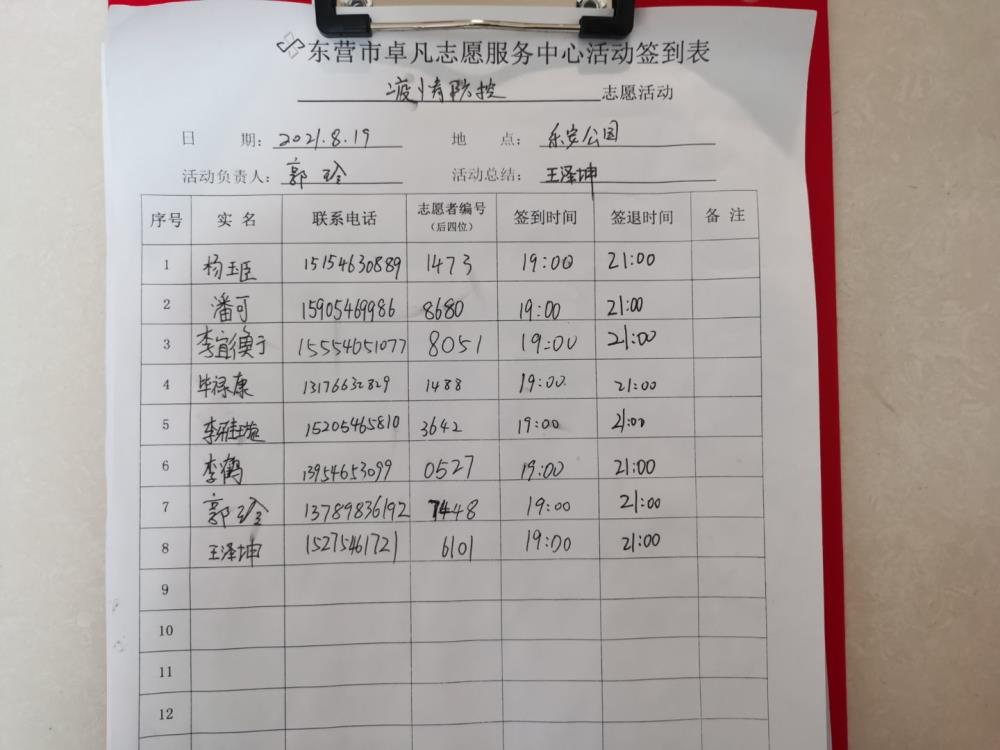 东营市卓凡志愿服务中心活动签到表
疫情防控 志愿活动
日 期: 2021.8.19 地 点: 乐安公园
活动负责人: 郭玲 活动总结: 王泽坤
序号 实名 联系电话 志愿者编号(后四位) 签到时间 签退时间 备注
1 杨玉臣 15154630889 1473 19:00 21:00
2 潘可 15905469986 8680 19:00 21:00
3 15554051077 8051 19:00 21:00
4 毕禄康 13176632829 1488 19:00 21:00
5 李雅璇 15205465810 3642 19:00 21:00
6 李鹤 13954653099 0527 19:00 21:00
7 郭玲 13789836192 7448 19:00 21:00
8 王泽坤 15275461721 6101 19:00 21:00
9
10
11
12